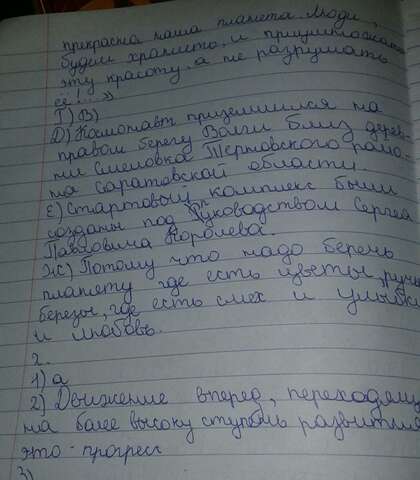 прекрасна наша планета. Люди,
будем хранить и приумножать
эту красоту, а не разрушать
её!..»
Г) В)
Д) Космонавт приземлился на
правом берегу Волги близ дерев-
ни Смеловка Терновского райо-
на Саратовской области.
Е) Стартовый комплекс были
созданы под Руководством Сергея
Павловича Королева.
Ж) Потому что надо беречь
планету где есть цветы, ручьи
березы, где есть смех и улыбки
и любовь.
2.
1) а
2) Движение вперед, переходящ
на более высоку ступень развития
это - прогресс
3)